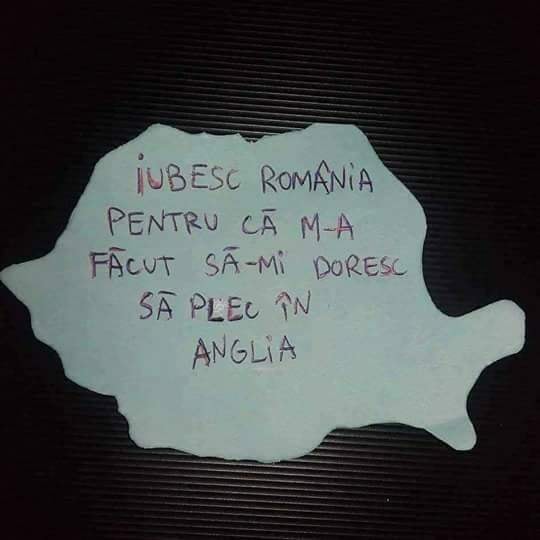 IUBESC ROMÂNIA
PENTRU CĂ M-A
FĂCUT SĂ-MI DORESC
SĂ PLEC ÎN
ANGLIA